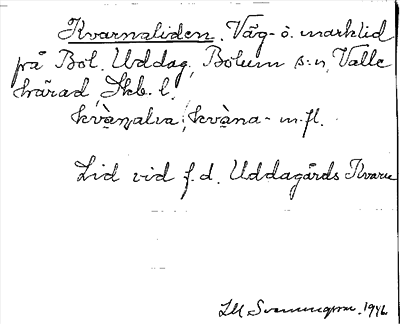 Kvarnaliden. Väg- o. marklid
på Bol. Uddag, Bolum s:n, Valle
härad, Skb. l.
kvàṇalıa; kvàṇa- m.fl.
Lid vid f.d. Uddagårds Kvarn
1946